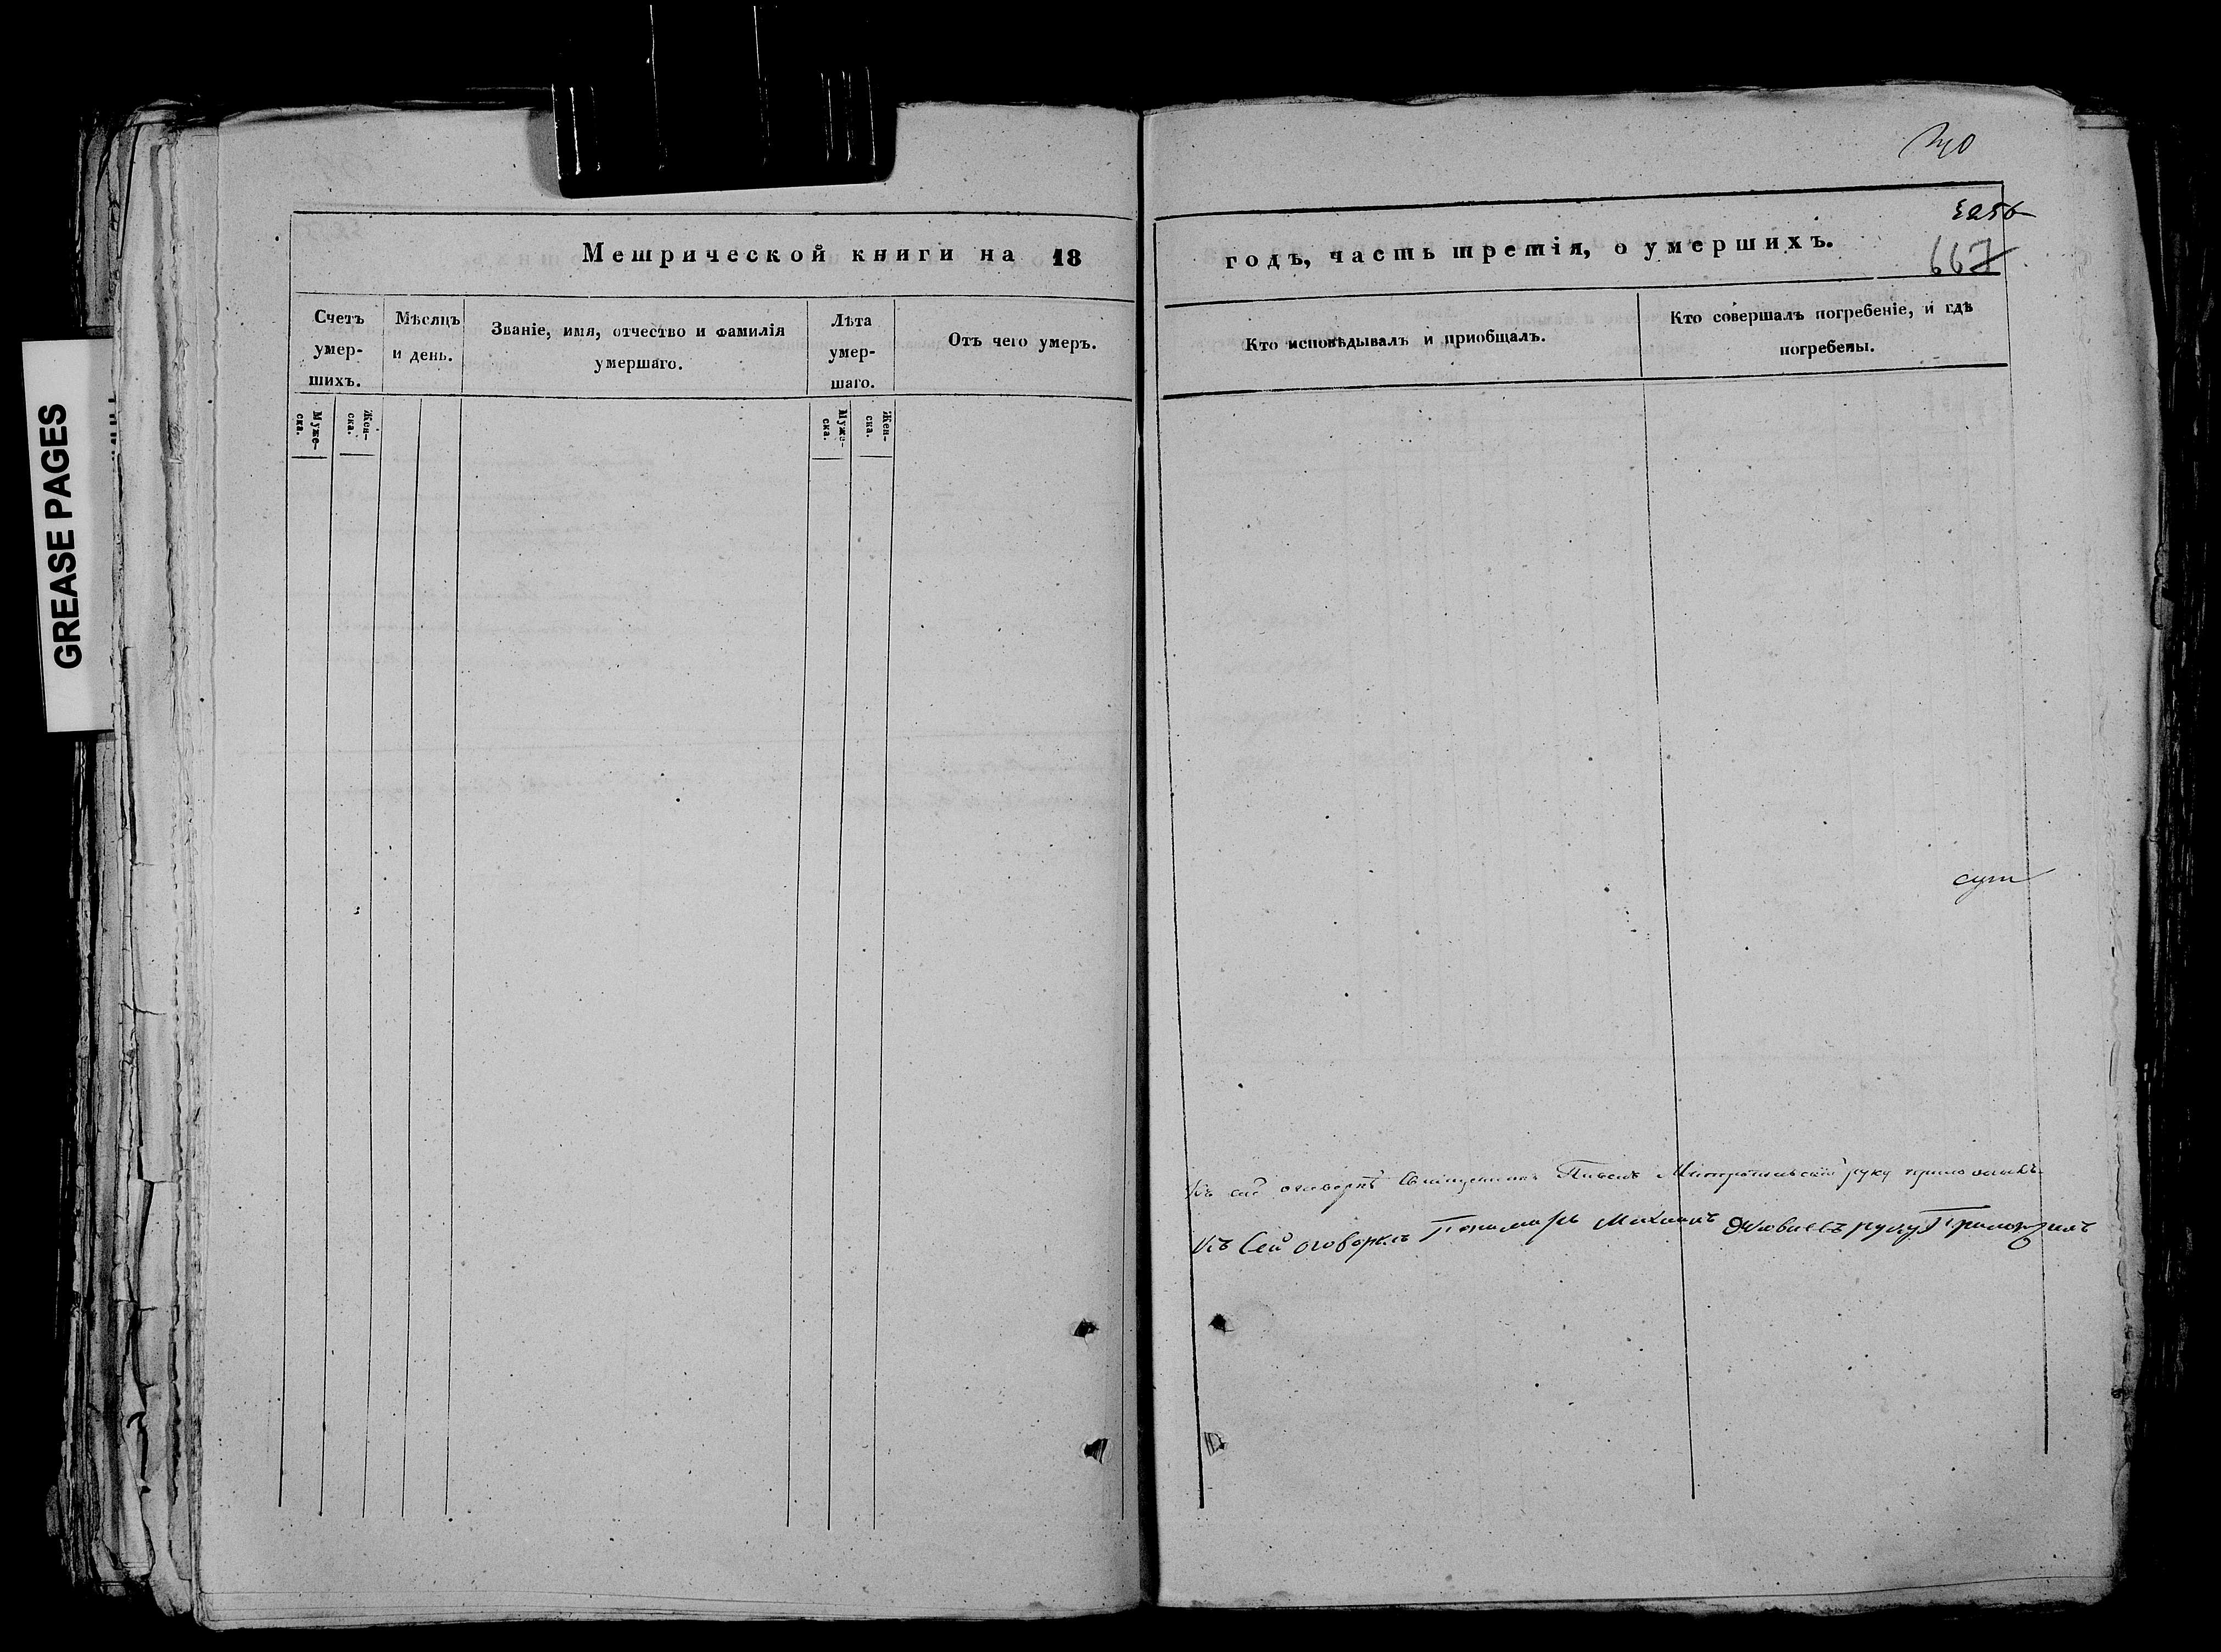 GREASE PAGES
Метрической книги на 18
Счетъ умер-шихъ.
Мѣсяцъ и день.
Званіе, имя, отчество и фамилія умершаго.
Лѣта умер-шаго.
Отъ чего умеръ.
Муже-ска.
Жен-ска.
Муже-ска.
Жен-ска.
667
годъ, часть третія, о умершихъ.
Кто исповѣдывалъ и приобщалъ.
Кто совершалъ погребеніе, и гдѣ погребены.
Къ сей оговоркѣ Священникъ руку приложилъ
Къ Сей оговоркѣ Пономарь Михаилъ руку Приложилъ